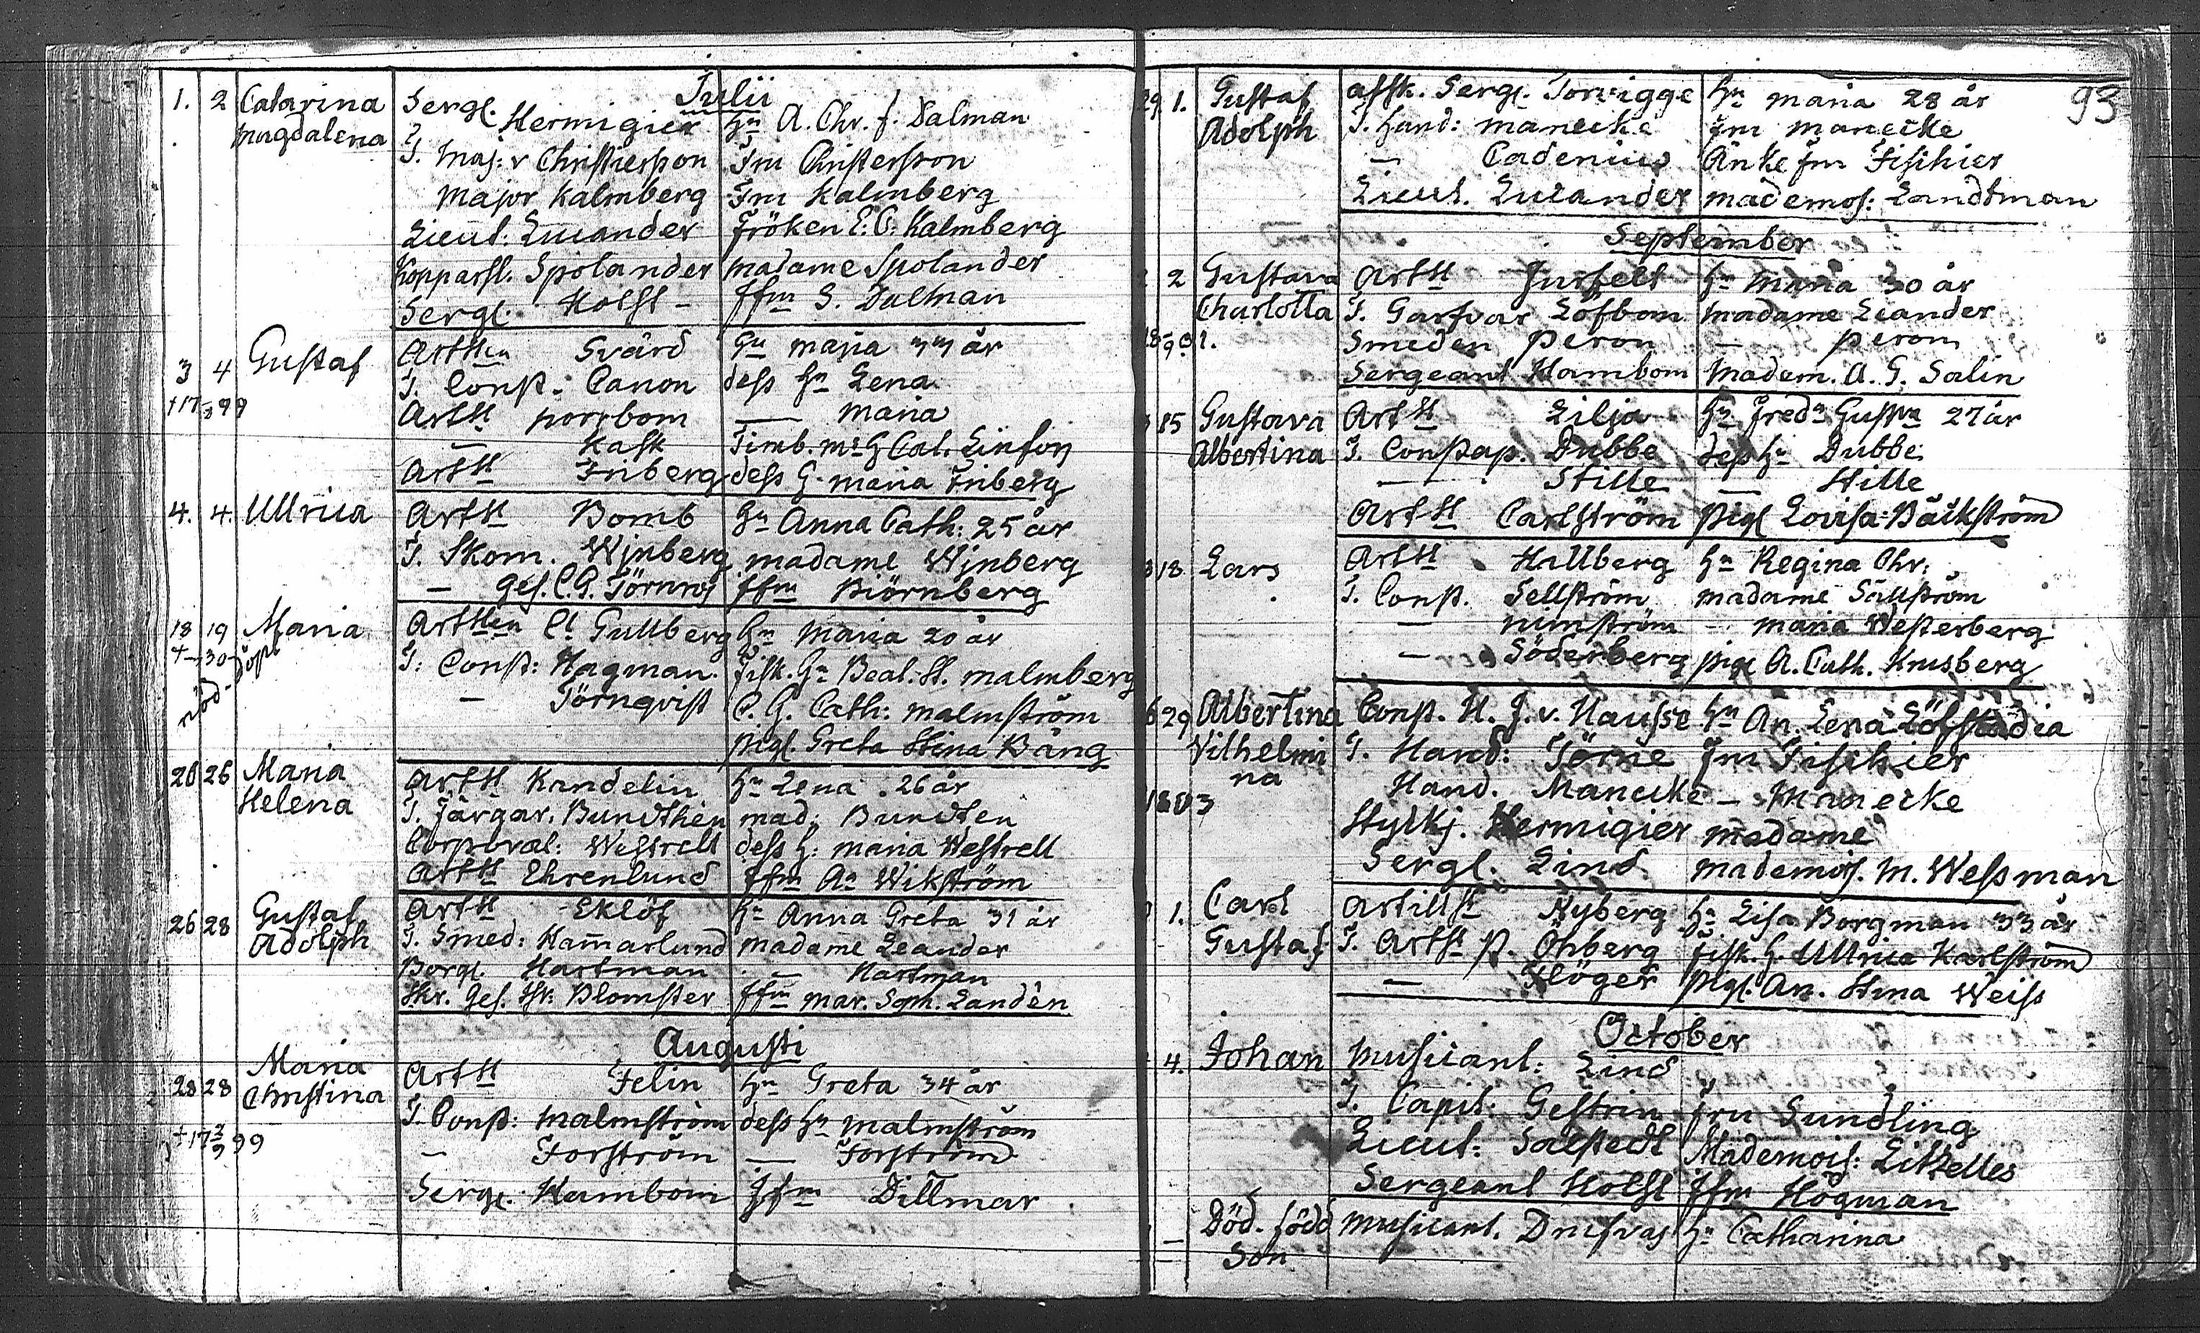 Julii
1. 2 Catarina Sergt. Hermigier Hu A. Chr. f. Dalman
Magdalena T. Maj: v Christiersson Fru Christersson
Major Kalmberg Fru Kalmberg
Lieut: Lucander Fröken E: C: Kalmberg
Spolander madame Spolander
Sergt. Holst - Jfru S. Dalman
3 4 Gustaf Artn Svärd Hu maria 33 år
T. Const: Canon dess Hu Lena
†17 99 Art porrbom — maria
— Kask Timb. Cat. Linfors
Art Inberg dess H. maria Inberg
4. 4. Ullrica Art Bomb Hu Anna Cath: 25 år
T. Skom. Wjnberg madame Wjnberg
— Ges. C. G. Törnros Jfru Biörnberg
18 19 Maria Art Cl Gullberg Hu maria 20 år
nöd-döpt T: Const: Hagman. Fisk. Hu Beat. St. malmberg
— Törnqvist C. G. Cath: malmström
pigl Greta Stina Bång
26 26 Maria Art Kandelin Hu Lena 26 år
Helena T. Färgar. Bundthen mad: Bundten
Corporal: Westrell dess H: maria Westrell
Art Ehrenlund Jfru An Wikström
26 28 Gustaf Art Eklöf Hu Anna Greta 31 år
Adolph T. Smed: Hamarlund madame Leander
Borgl. Hartman — Hartman
Skr. Ges. Blomster Jfru mar. Soph. Landén
Augusti
Maria
28 28 Christina Art Felin Hu Greta 34 år
T. Const: malmström dess Hu malmström
†17 99 — Forström — Forström
Sergt. Hambom Jfru Dillmar
93
29 1. Gustaf afsk. Sergt. Torvigge Hu maria 28 år
Adolph T. Hand: manecke Fru manecke
— Cadenius Änke fru Fischier
Lieut. Lucander mademos: Landtman
September
2 Gustava Art Jurfelt Hu maria 30 år
Charlotta T. Garfvar Löfbom madame Liander
Smeden perom — perom
Sergeant Hambom Madem. A. G. Salin
15 Gustava Art Lilja Hu Fred Gustva 27 år
Albertina T. Constap. Dubbe dess Hu Dubbe
— Stille — Stille
Art Carlström pigl Lovisa Bäckström
18 Lars Art Hallberg Hu Regina Chr:
T. Const. Sellström madame Sällström
— nimström — maria Westerberg
— Söderberg pigl A. Cath. Krusberg
29 Albertina Const. H. J. v. Hausse Hu An. Lena Löfstadia
Vilhelmi T. Hand: Törne Fru Fischier
na
1803 Hand. Manecke — Manecke
Stydkj. Hermigier madame
Sergt. Lind mademos. M. Wessman
1. Carl Artill Nyberg Hu Lisa Borgman 33 år
Gustaf T. Art p. Ohberg Fisk. H. Ullrica Karlström
— Höger pigl. An. Stina Weiss
October
4. Johan Musicant: Lind
T. Capit: Gestrin Fru Sundling
Lieut: Salstedt Mademois: Litzelles
Sergeant Holst Jfru Högman
Död. född Musicant. Drufvas Hu Catharina
Son